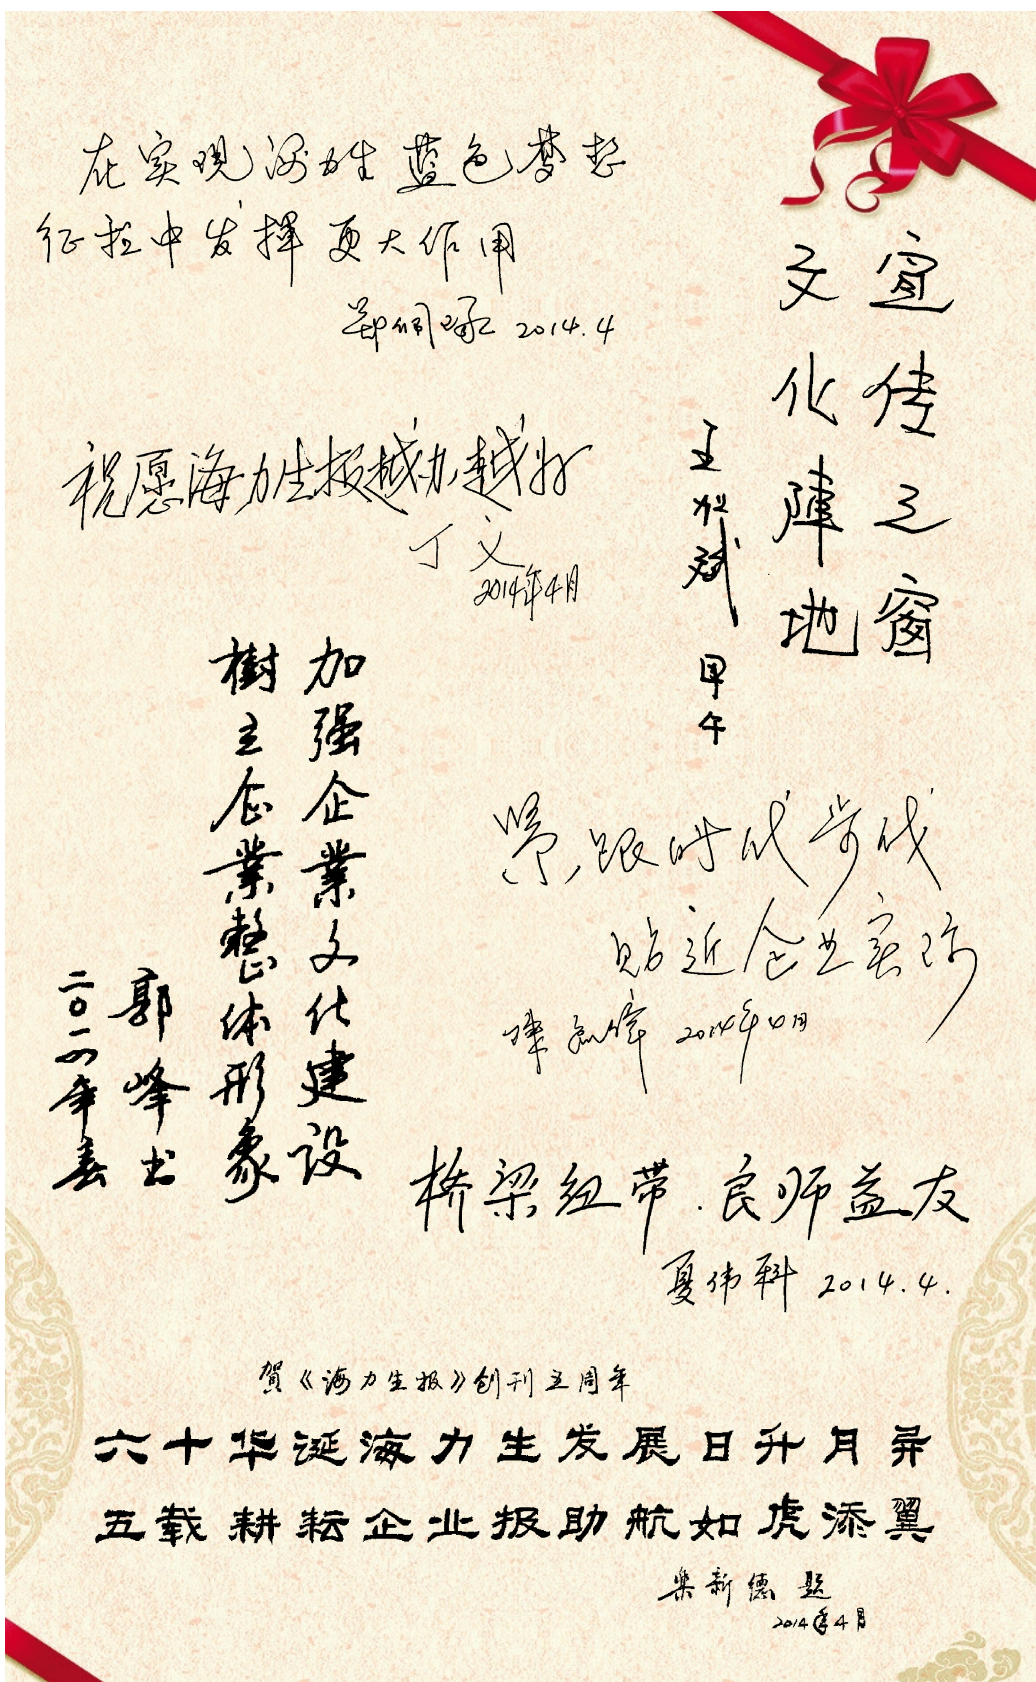 在实现海力生蓝色梦想
征程中发挥更大作用
2014.4
宣传之窗
文化陣地
王 斌
甲午
祝愿海力生报越办越好
丁义
2014年4月
加强企業文化建设
樹立企業整体形象
郭峰书
二〇一四年春
紧跟时代步伐
贴近企业实际
2014年4月
桥梁纽带.良师益友
夏伟科 2014.4.
賀《海力生报》创刊五周年
六十华诞海力生发展日升月异
五载耕耘企业报助航如虎添翼
乐新德 题
2014年4月